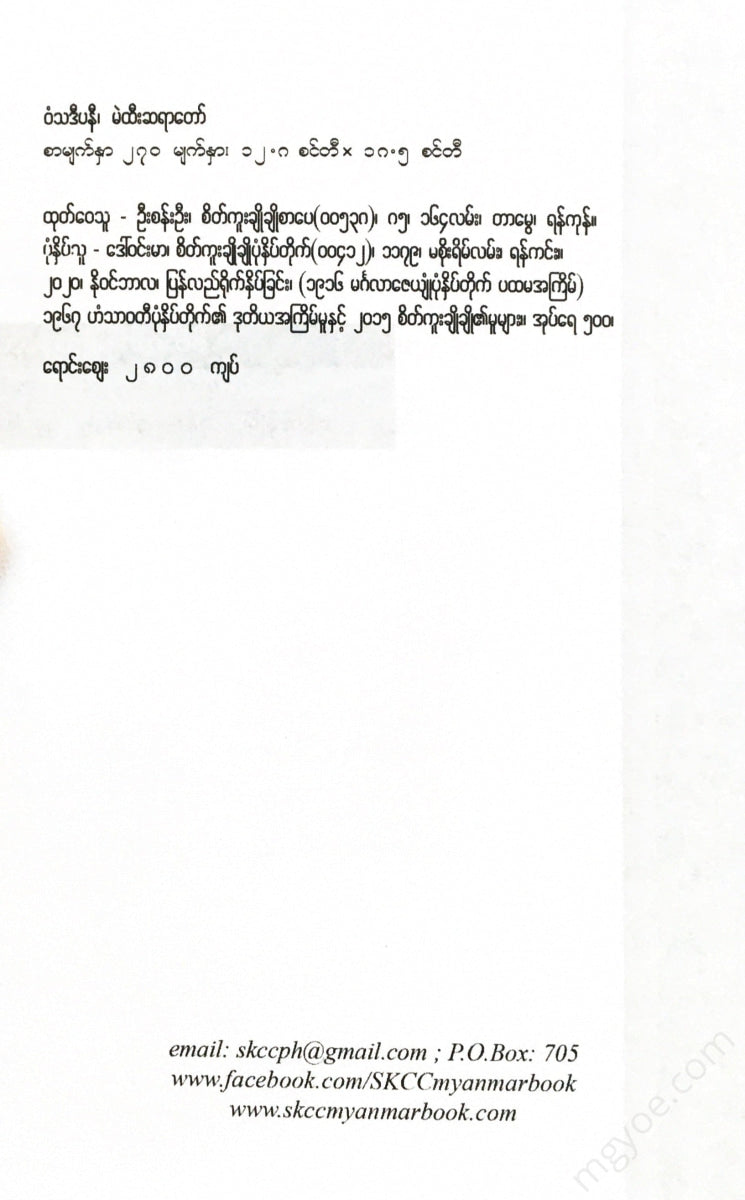 ဝံသဒီပနီ၊ မဲထီးဆရာတော်
စာမျက်နှာ ၂၇၀ မျက်နှား ၁၂.၈ စင်တီ× ၁၈.၅ စင်တီ
ထုတ်ဝေသူ - ဦးစန်းဦး၊ စိတ်ကူးချိုချိုစာပေ(၀၀၅၃၈)၊ ၈၅၊ ၁၆၄လမ်း၊ တာမွေ၊ ရန်ကုန်။
ပုံနှိပ်သူ - ဒေါ်ဝင်းမာ၊ စိတ်ကူးချိုချိုပုံနှိပ်တိုက်(၀၀၄၁၂)၊ ၁၁၇၉၊ မစိုးရိမ်လမ်း၊ ရန်ကင်း။
၂၀၂၀၊ နိုဝင်ဘာလ၊ ပြန်လည်ရိုက်နှိပ်ခြင်း၊ (၁၉၁၆ မင်္ဂလာဇေယျုံပုံနှိပ်တိုက် ပထမအကြိမ်)
၁၉၆၇ ဟံသာဝတီပုံနှိပ်တိုက်၏ ဒုတိယအကြိမ်မူနှင့် ၂၀၁၅ စိတ်ကူးချိုချို၏မူများ။ အုပ်ရေ ၅၀၀၊
ရောင်းဈေး ၂၈၀၀ ကျပ်
email: skccph@gmail.com ; P.O.Box: 705
www.facebook.com/SKCCmyanmarbook
www.skccmyanmarbook.com
mgyoe.com